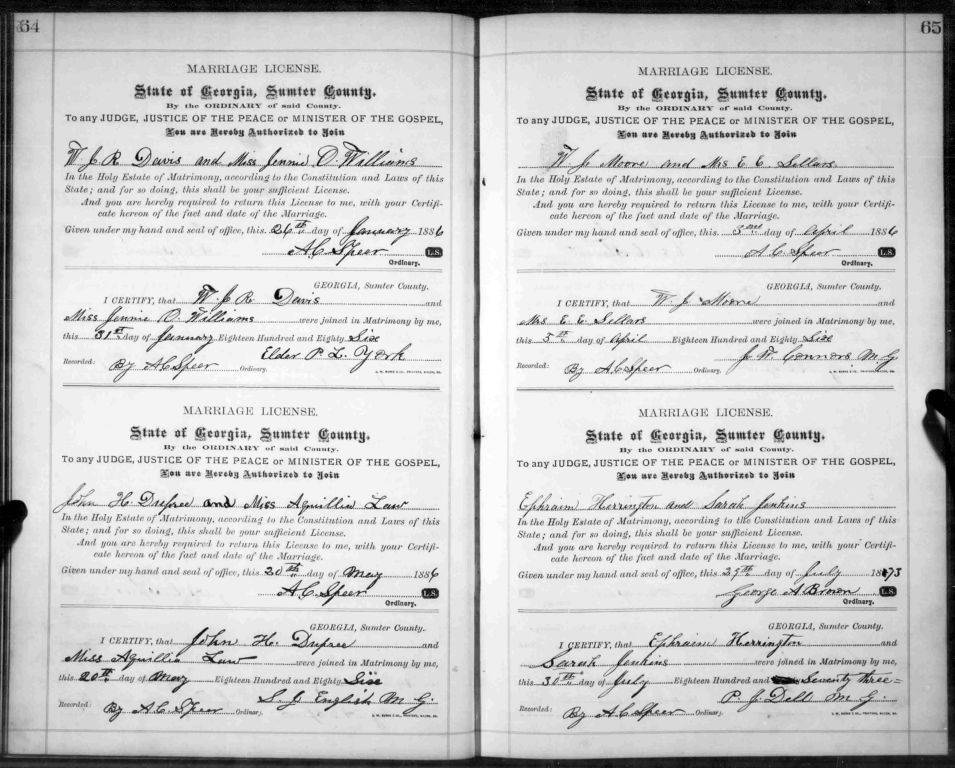 64
MARRIAGE LICENSE.
State of Georgia, Sumter County.
By the ORDINARY of said County.
To any JUDGE, JUSTICE OF THE PEACE or MINISTER OF THE GOSPEL,
You are Hereby Authorized to Join
W J R Davis and Miss Jennie O. Williams
In the Holy Estate of Matrimony, according to the Constitution and Laws of this
State; and for so doing, this shall be your sufficient License.
And you are hereby required to return this License to me, with your Certifi-
cate hereon of the fact and date of the Marriage.
Given under my hand and seal of office, this 26th day of January 1886
A C Speer L.S.
Ordinary.
GEORGIA, Sumter County.
I CERTIFY, that W J R Davis and
Miss Jennie O. Williams were joined in Matrimony by me,
this 31st day of January Eighteen Hundred and Eighty Six
Elder P. L. York
Recorded: By A C Speer Ordinary.
MARRIAGE LICENSE.
State of Georgia, Sumter County.
By the ORDINARY of said County.
To any JUDGE, JUSTICE OF THE PEACE or MINISTER OF THE GOSPEL,
You are Hereby Authorized to Join
John H. Dupree and Miss Aquillia Law
In the Holy Estate of Matrimony, according to the Constitution and Laws of this
State; and for so doing, this shall be your sufficient License.
And you are hereby required to return this License to me, with your Certifi-
cate hereon of the fact and date of the Marriage.
Given under my hand and seal of office, this 20th day of May 1886
A C Speer L.S.
Ordinary.
GEORGIA, Sumter County.
I CERTIFY, that John H. Dupree and
Miss Aquillia Law were joined in Matrimony by me,
this 20th day of May Eighteen Hundred and Eighty Six
S. J. English M G
Recorded: By A C Speer Ordinary.
65
MARRIAGE LICENSE.
State of Georgia, Sumter County.
By the ORDINARY of said County.
To any JUDGE, JUSTICE OF THE PEACE or MINISTER OF THE GOSPEL,
You are Hereby Authorized to Join
W J Moore and Mrs E. E. Sellars
In the Holy Estate of Matrimony, according to the Constitution and Laws of this
State; and for so doing, this shall be your sufficient License.
And you are hereby required to return this License to me, with your Certifi-
cate hereon of the fact and date of the Marriage.
Given under my hand and seal of office, this day of April 1886
A C Speer L.S.
Ordinary.
GEORGIA, Sumter County.
I CERTIFY, that W J Moore and
Mrs E. E. Sellars were joined in Matrimony by me,
this 5th day of April Eighteen Hundred and Eighty Six
J. W. Connors M. G
Recorded: By A C Speer Ordinary.
MARRIAGE LICENSE.
State of Georgia, Sumter County.
By the ORDINARY of said County.
To any JUDGE, JUSTICE OF THE PEACE or MINISTER OF THE GOSPEL,
You are Hereby Authorized to Join
Ephraim Herrington and Sarah Jenkins
In the Holy Estate of Matrimony, according to the Constitution and Laws of this
State; and for so doing, this shall be your sufficient License.
And you are hereby required to return this License to me, with your Certifi-
cate hereon of the fact and date of the Marriage.
Given under my hand and seal of office, this 29th day of July 1873
George A Brown L.S.
Ordinary.
GEORGIA, Sumter County.
I CERTIFY, that Ephraim Herrington and
Sarah Jenkins were joined in Matrimony by me,
this 30th day of July Eighteen Hundred and Seventy three
P. J. Dell M. G.
Recorded: By A C Speer Ordinary.